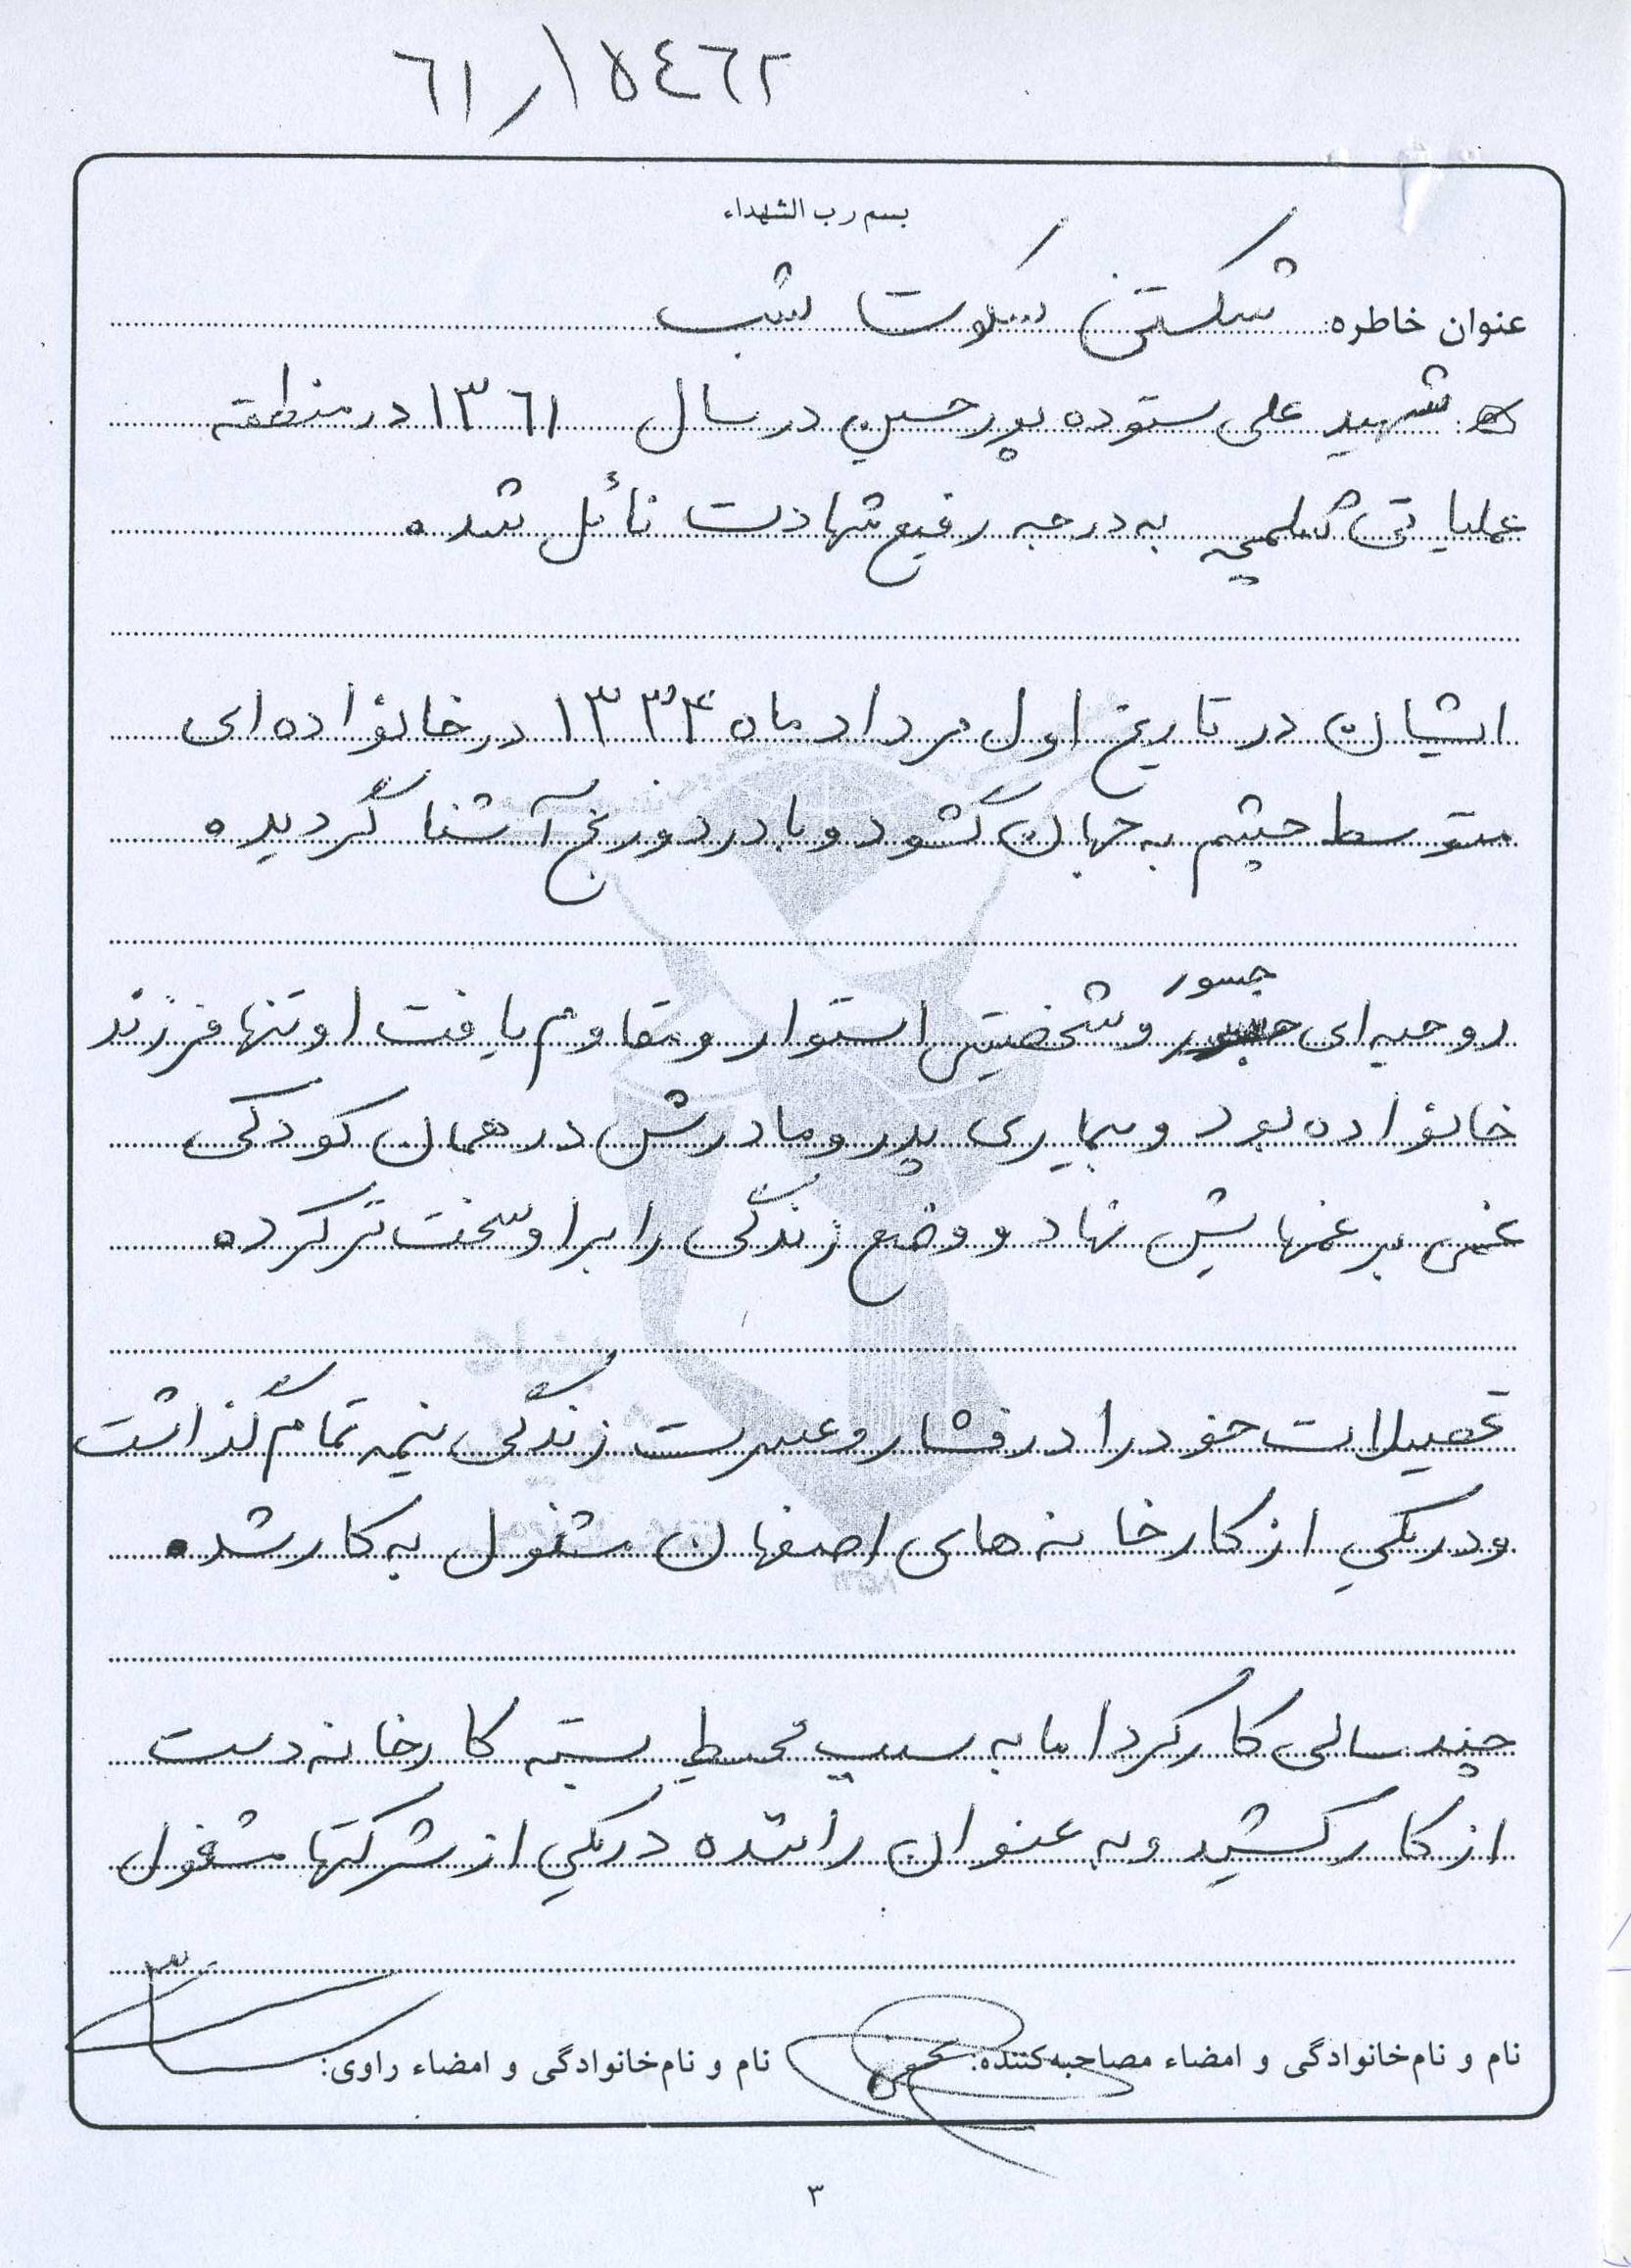 ٦١/١٥٤٦٢
بسم رب الشهداء
عنوان خاطره: شکستن سکوت شب
شهید علی ستوده پور حسین در سال ١٣٦١ در منطقه
عملیاتی شلمچه به درجه رفیع شهادت نائل شده
ایشان در تاریخ اول مرداد ماه ١٣٣۴ در خانواده ای
متوسط چشم به جهان گشود و با درد و رنج آشنا گردیده
جسور
روحیه ای و شخصیتی استوار و مقاوم یافت او تنها فرزند
خانواده بود و بیماری پدر و مادرش در همان کودکی
غمی بر غمهایش نهاد و وضع زندگی را برا و سخت تر کرده
تحصیلات خود را در فشار و عسرت زندگی نیمه تمام گذاشت
و در یکی از کارخانه های اصفهان مشغول به کار شد.
چند سالی کار کرد اما به سبب محیط بسته کارخانه دست
از کار کشید و به عنوان راننده در یکی از شرکتها مشغول
نام و نام خانوادگی و امضاء مصاحبه کننده: نام و نام خانوادگی و امضاء راوی:
٣